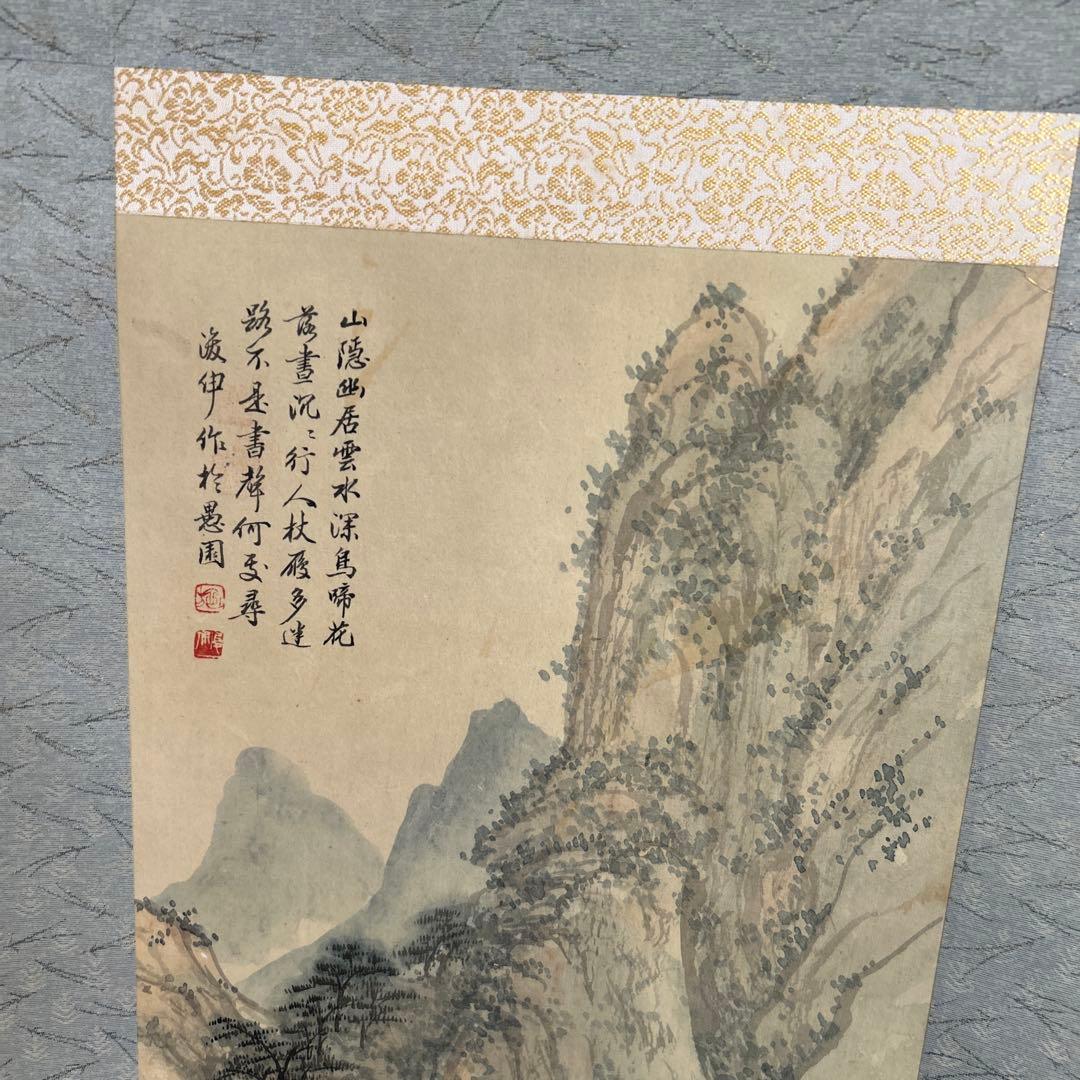 山隱幽居雲水深鳥啼花
落晝沉〻行人杖履多迷
路不是書聲何處尋
作於愚園